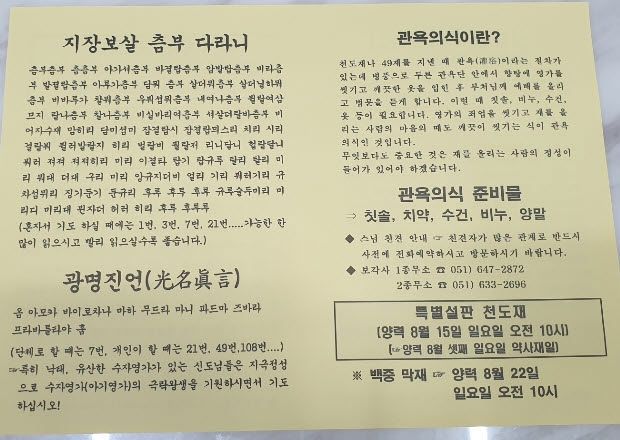 지장보살 츰부 다라니
츰부츰부 츰츰부 아가셔츰부 바결랍츰부 암발랍츰부 비라츰
부 발결랍츰부 아루가츰부 담뭐 츰부 살더뭐츰부 살더닐하뭐
츰부 비바루가 찰뭐츰부 우뭐섬뭐츰부 내여나츰부 뭘랄여삼
므지 랄나츰부 찰나츰부 비실바리여츰부 셔살더랄바츰부 비
어자수재 맘히리 담미셤미 잡결랍시 잡결랍믜스리 치리 시리
결랄뭐 뭘러발랄디 히리 벌랄비 뭘랄저 러니달니 헐랄달니
뭐러 져져 져져히리 미리 이결타 탑기 탑규루 탈리 탈리 미
리 뭐대 더대 구리 미리 앙규즤더비 얼리 기리 뭐러기리 규
차섬믜리 징기 둔기 둔규리 후루 후루 후루 규루술두미리 미
리디 미리대 뷘자더 허러 히리 후루후루루
(혼자서 기도 하실 때에는 1번, 3번, 7번, 21번.....가능한 한
많이 읽으시고 빨리 읽으실수록 좋습니다.)
광명진언(光名眞言)
옴 아모카 바이로차나 마하 무드라 마니 파드마 즈바라
프라바를타야 훔
(단체로 할 때는 7번, 개인이 할 때는 21번, 49번,108번....)
☞특히 낙태, 유산한 수자영가가 있는 신도님들은 지극정성
으로 수자영가(아기영가)의 극락왕생을 기원하시면서 기도
하십시오!
관욕의식이란?
천도재나 49재를 지낼 때 관욕(灌浴)이라는 절차가
있는데 병풍으로 두른 관욕단 안에서 향탕에 영가를
씻기고 깨끗한 옷을 입힌 후 부처님께 예배를 올리
고 법문을 듣게 합니다. 이럴 때 칫솔, 비누, 수건,
옷 등이 필요합니다. 영가의 죄업을 씻기고 재를 올
리는 사람의 마음의 때도 깨끗이 씻기는 식이 관욕
의식인 것입니다.
무엇보다도 중요한 것은 재를 올리는 사람의 정성이
들어가 있어야 하겠습니다.
관욕의식 준비물
⇒ 칫솔, 치약, 수건, 비누, 양말
◆ 스님 친견 안내 ☞ 친견자가 많은 관계로 반드시
사전에 전화예약하시고 방문하시기 바랍니다.
◆ 보각사 1종무소 ☎ 051) 647-2872
2종무소 ☎ 051) 633-2696
특별설판 천도재
(양력 8월 15일 일요일 오전 10시)
(☞양력 8월 셋째 일요일 약사재일)
※ 백중 막재 ☞ 양력 8월 22일
일요일 오전 10시